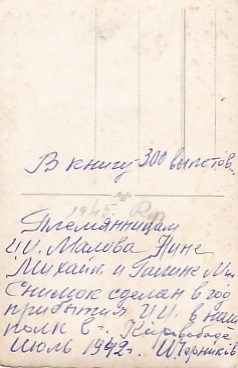 В книгу 300 вылетов.
1945
Племянницам
И.И. Малова Нине
Михайл. и Галине Мих.
Снимок сделан в год
прибытия И.И. в наш
полк в г. Кировобаде
Июль 1942 г. И Черников